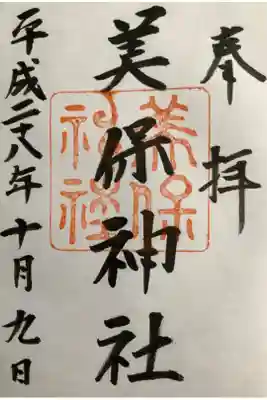 奉拝
美保神社
美保
神社
平成二十八年十月九日